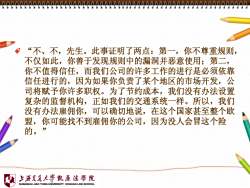 “不，不，先生。此事证明了两点：第一，你不尊重规则，
不仅如此，你善于发现规则中的漏洞并恶意使用；第二，
你不值得信任，而我们公司的许多工作的进行是必须依靠
信任进行的，因为如果你负责了某个地区的市场开发，公
司将赋予你许多职权。为了节约成本，我们没有办法设置
复杂的监督机构，正如我们的交通系统一样。所以，我们
没有办法雇佣你，可以确切地说，在这个国家甚至整个欧
盟，你可能找不到雇佣你的公司，因为没人会冒这个险
的。”
上海交通大学凯原法学院